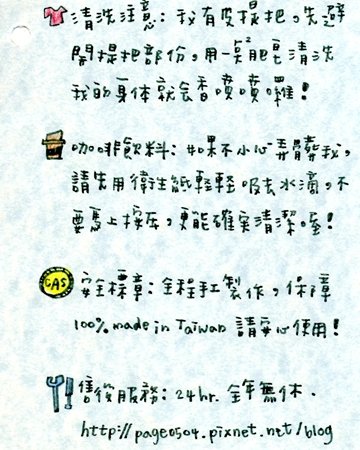 清洗注意：我有皮提把。先避
開提把部份，用一點肥皂清洗
我的身体就會香噴噴囉！
咖啡飲料：如果不小心弄髒我，
請先用衛生紙輕輕吸去水滴。不
要馬上按壓，更能確實清潔喔！
CAS
安全標章：全程手工製作，保障
100% made in Taiwan 請安心使用！
售後服務：24hr. 全年無休．
http://page0504.pixnet.net/blog